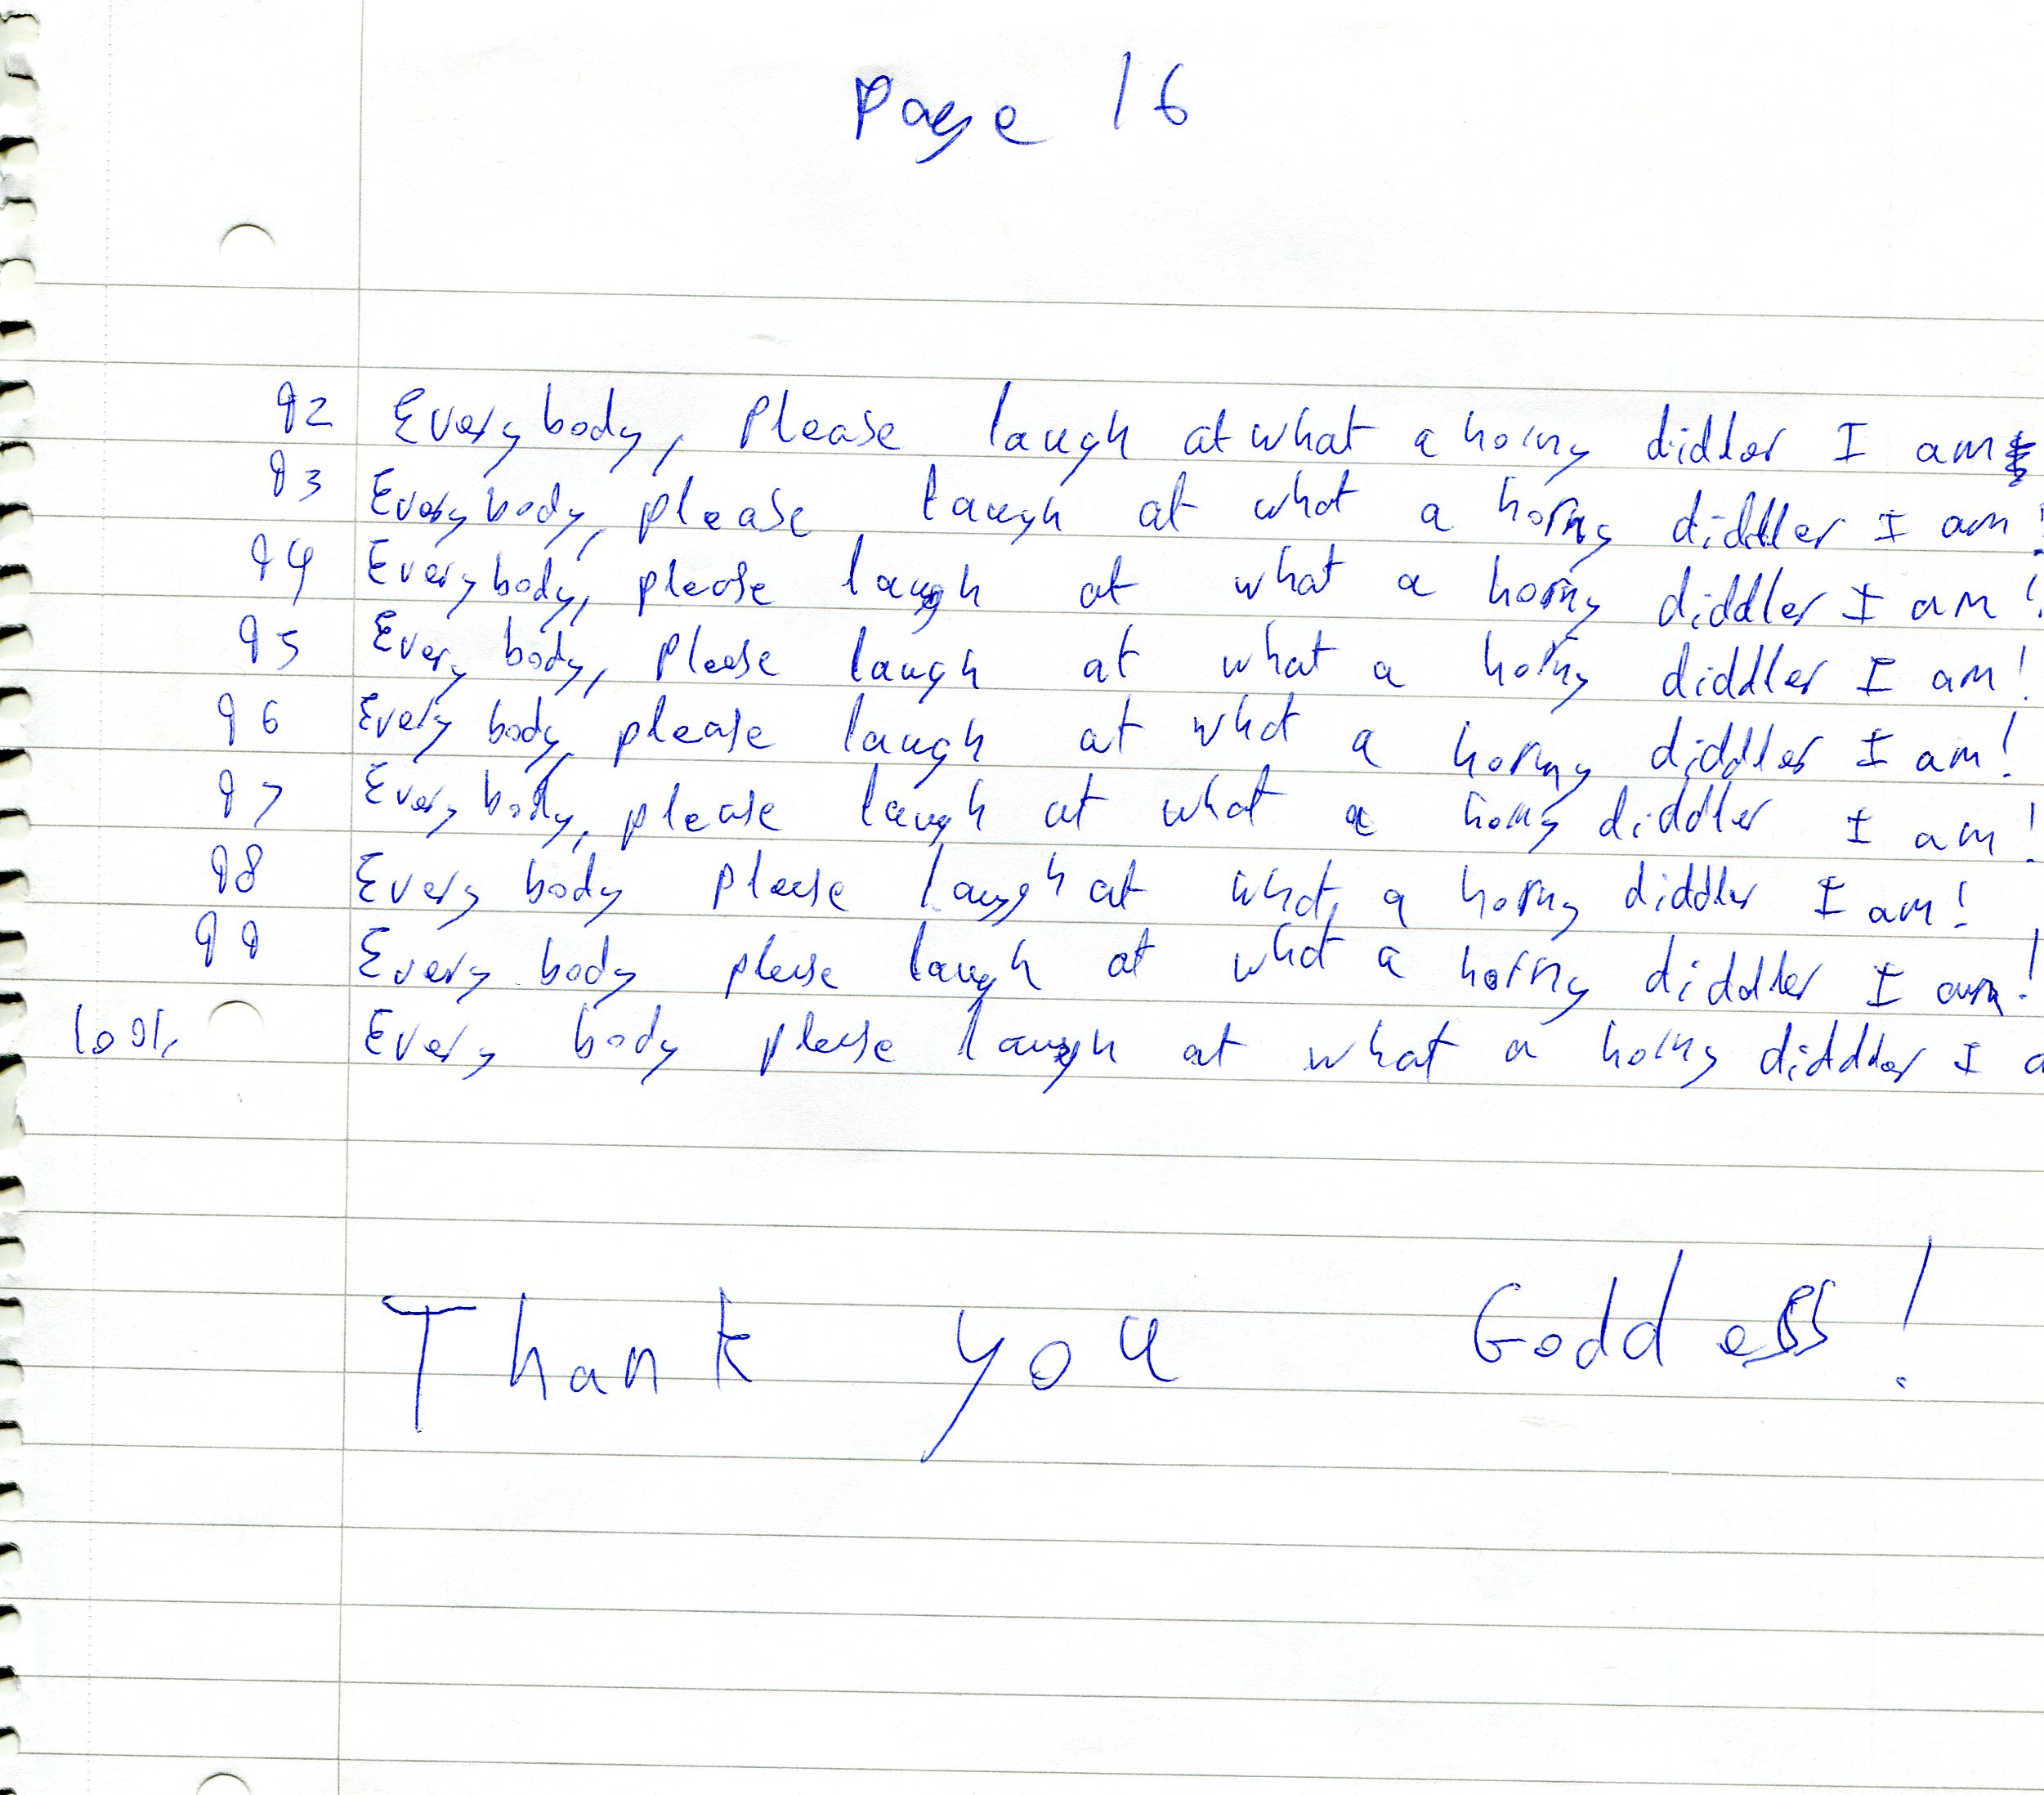 Page 16
92 Everybody, Please laugh at what a horny diddler I am
93 Everybody, please laugh at what a horny diddler I am!
94 Everybody, please laugh at what a horny diddler I am!
95 Every body, please laugh at what a horny diddler I am!
96 Every body, please laugh at what a horny diddler I am!
97 Every body, please laugh at what a horny diddler I am!
98 Every body please laugh at what a horny diddler I am!
99 Every body please laugh at what a horny diddler I am!
Every body please laugh at what a horny didddler I a
Thank you Goddess!